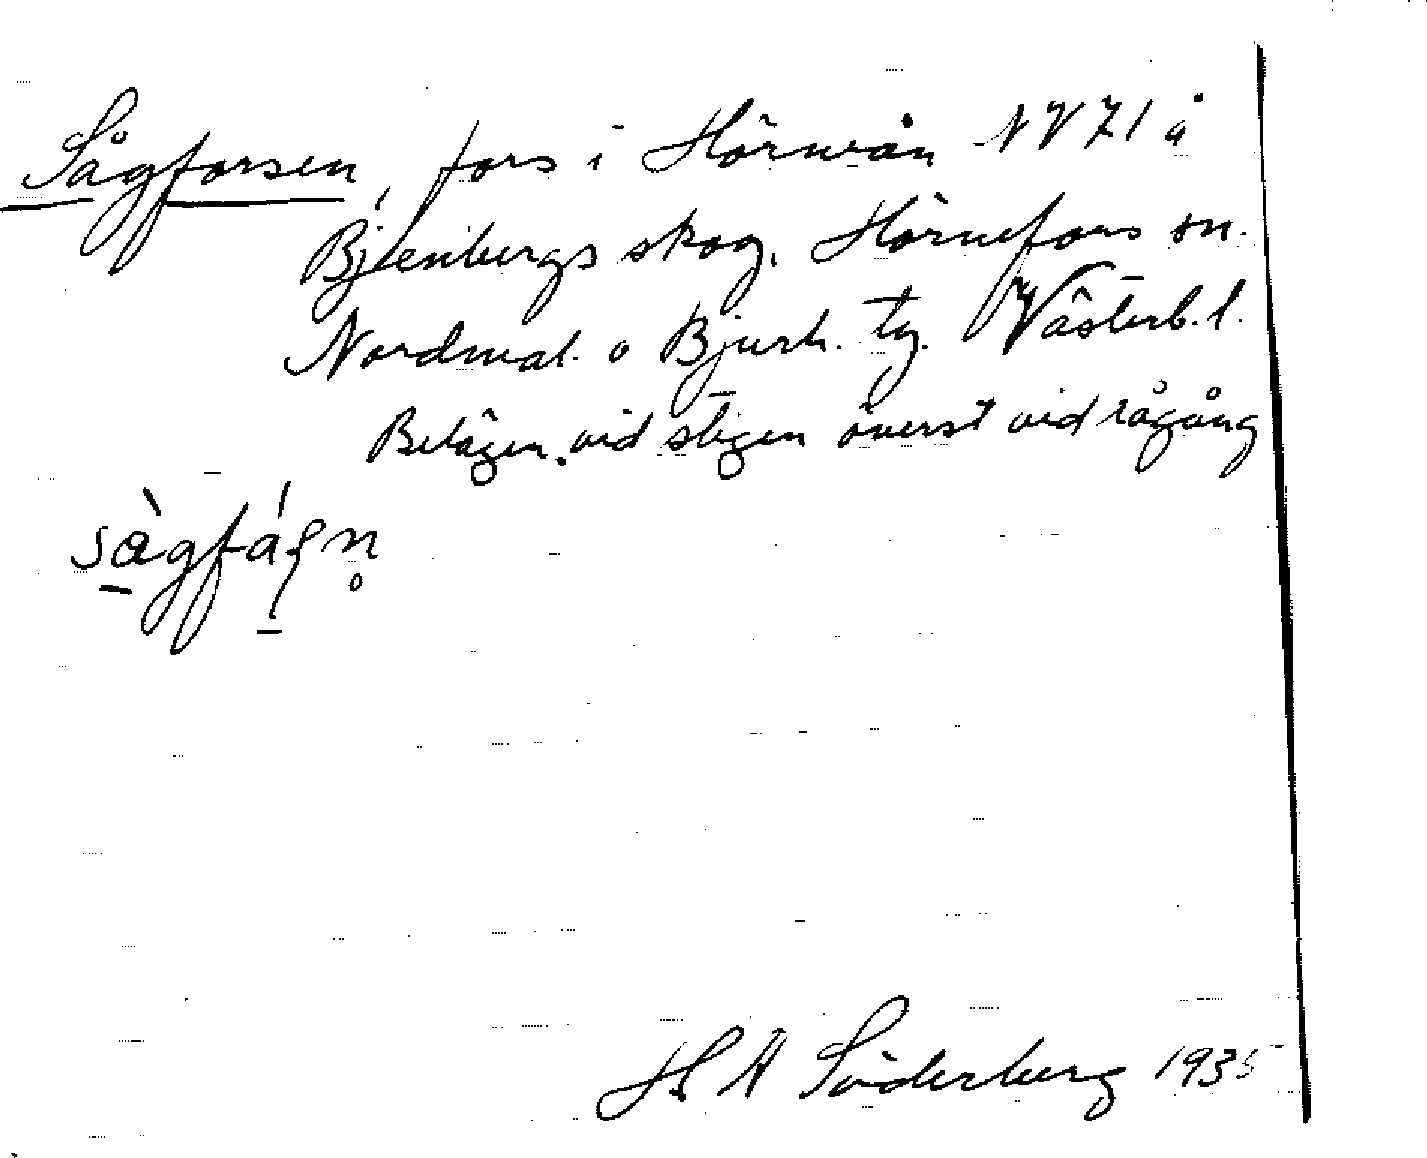 Sågforsen, fors i Hörneån NV 71 å
Bjlenbergs skog. Hörnefors sn.
Nordmal. o Bjurh. tg. Västerb. l.
Belägen vid stigen överst vid rågång
sågfåʂn̥
H A Söderberg 1935